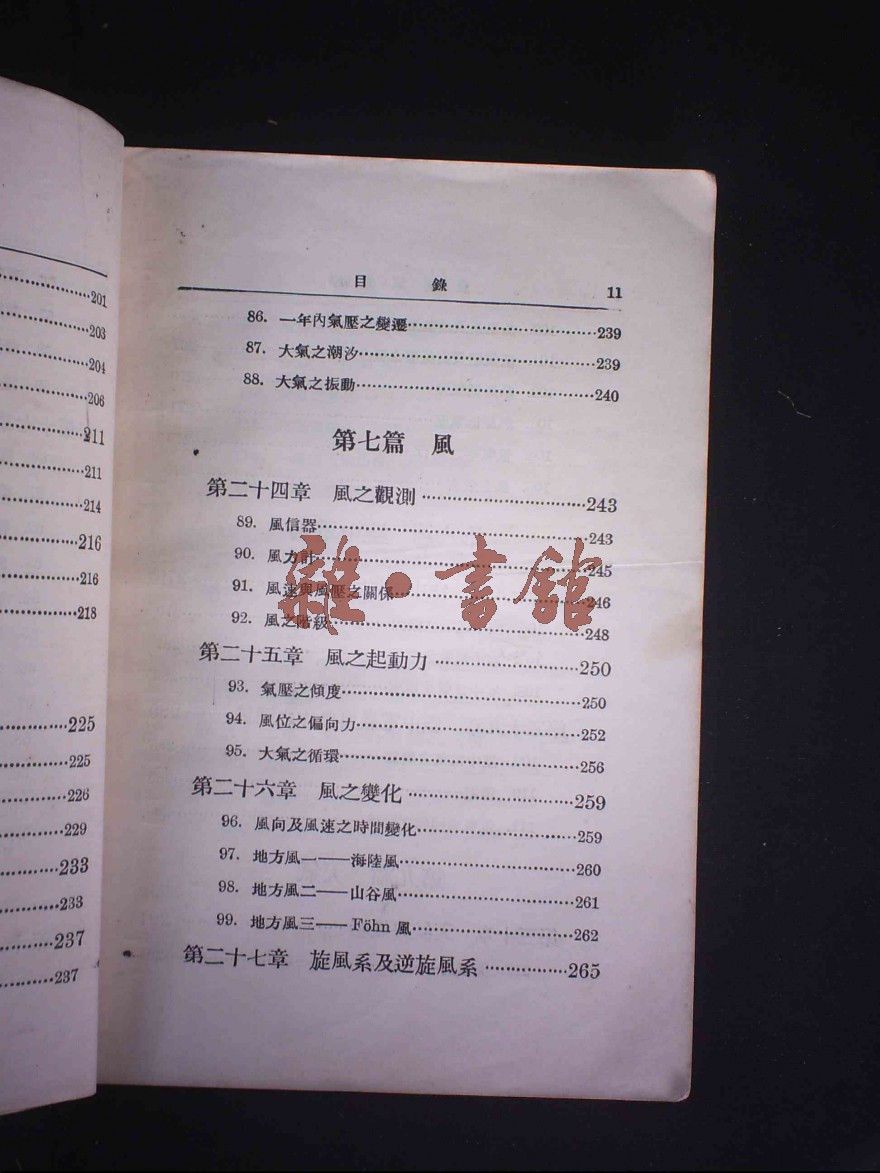 201
203
204
206
211
211
214
216
216
218
225
225
226
229
233
233
237
237
目 錄 11
86. 一年內氣壓之變遷 239
87. 大氣之潮汐 239
88. 大氣之振動 240
第七篇 風
第二十四章 風之觀測 243
89. 風信器 243
90. 風力計 245
91. 風速與風壓之關係 246
92. 風之階級 248
雜·書館
第二十五章 風之起動力 250
93. 氣壓之傾度 250
94. 風位之偏向力 252
95. 大氣之循環 256
第二十六章 風之變化 259
96. 風向及風速之時間變化 259
97. 地方風一——海陸風 260
98. 地方風二——山谷風 261
99. 地方風三——Föhn 風 262
第二十七章 旋風系及逆旋風系 265